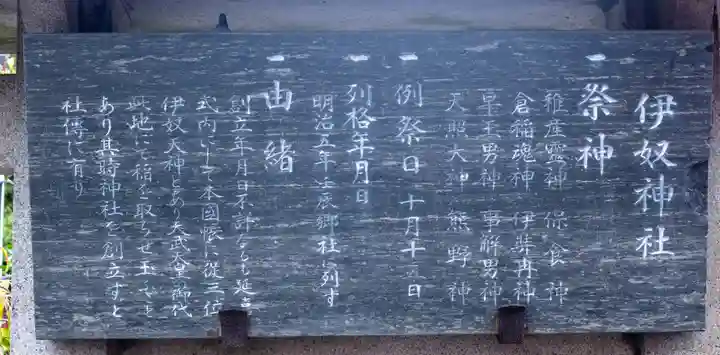 伊奴神社
一 祭神
稚産霊神 保食神
倉稲魂神 伊弉冉神
早玉男神 事解男神
天照大神 熊野神
一 例祭日 十月十五日
一 列格年月日
明治五年壬辰郷社ニ列す
一 由緒
創立年月日不詳なるも延喜
式内にして本國帳に従三位
伊奴天神とあり天武天皇の御代
此地にて稲を取らせ玉ひしも
あり其時神社を創立すと
社傳に有り